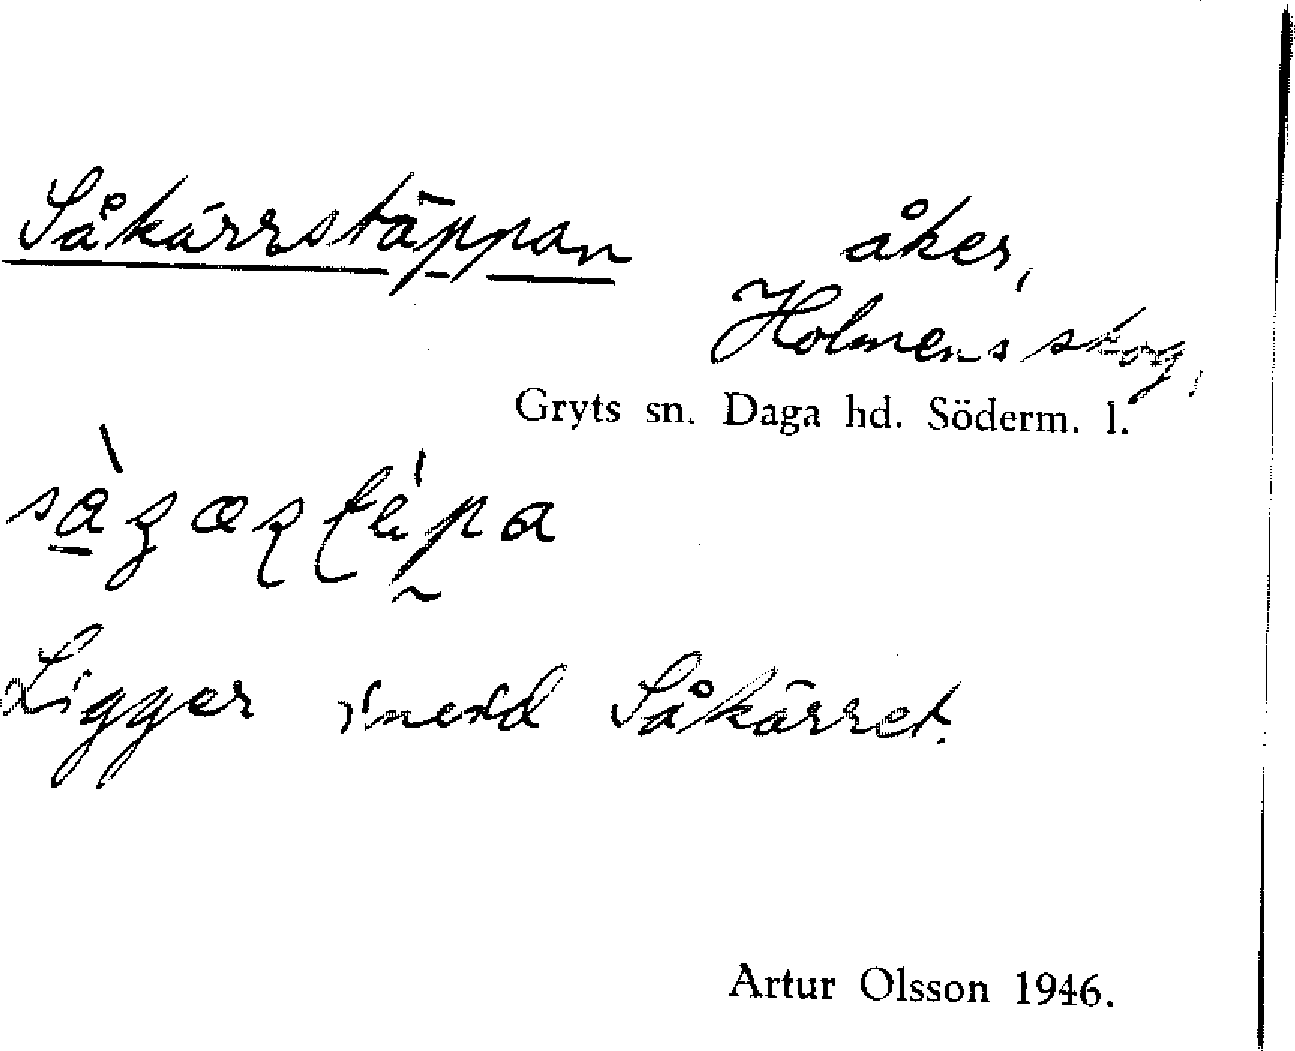 Såkärrstäppan åker,
Holmens skog,
Gryts sn. Daga hd. Söderm. l.
Ligger Såkärret.
Artur Olsson 1946.